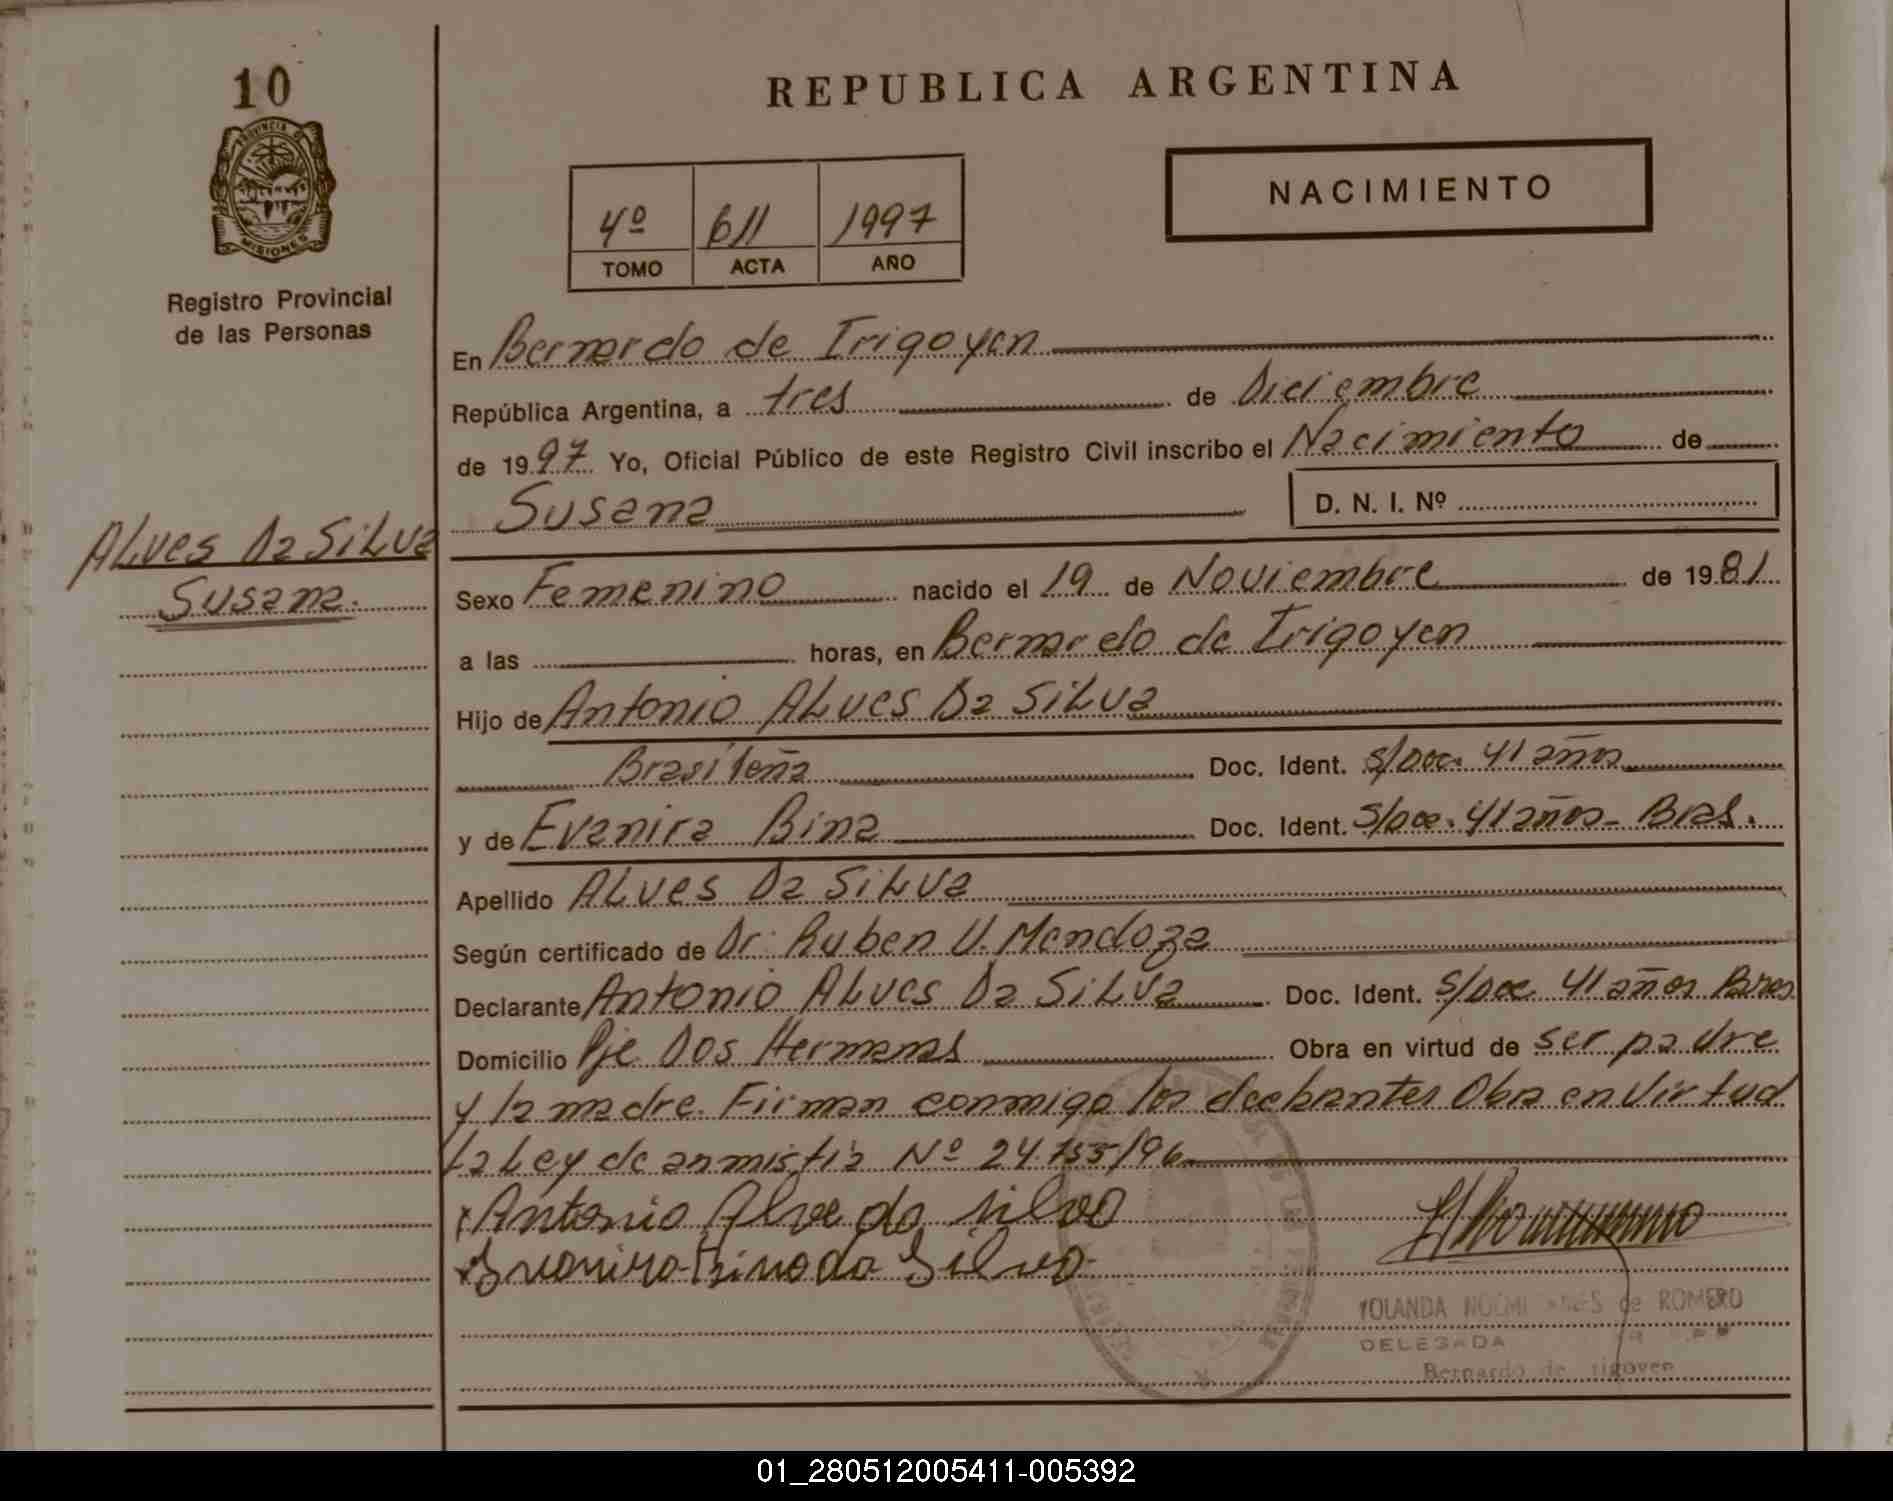 10
PROVINCIA DE
MISIONES
Registro Provincial
de las Personas
REPUBLICA ARGENTINA
4º 611 1997
TOMO ACTA AÑO
NACIMIENTO
En Bernardo de Irigoyen
República Argentina, a tres de Diciembre
de 1997 Yo, Oficial Público de este Registro Civil inscribo el Nacimiento de
Susana D. N. I. Nº
ALves Da SiLva
Susana.
Sexo Femenino nacido el 19 de Noviembre de 1981
a las horas, en Bernardo de Irigoyen
Hijo de Antonio ALves Da SiLva
Brasileña Doc. Ident. s/Doc. 41 años
y de Evanira Bina Doc. Ident. s/Doc. 41 años - Bras.
Apellido ALves Da SiLva
Según certificado de Dr. Ruben V. Mendoza
Declarante Antonio ALves Da SiLva Doc. Ident. s/Doc 41 años Bras
Domicilio Pje Dos Hermanas Obra en virtud de ser padre
y la madre. Firman conmigo los declarantes Obra en Virtud
La Ley de anmistia Nº /96
x Antonio Alve da silva
x Evanira Bina da Silva
YOLANDA NOEMI de ROMERO
DELEGADA
Bernardo de Irigoyen
01_280512005411-005392